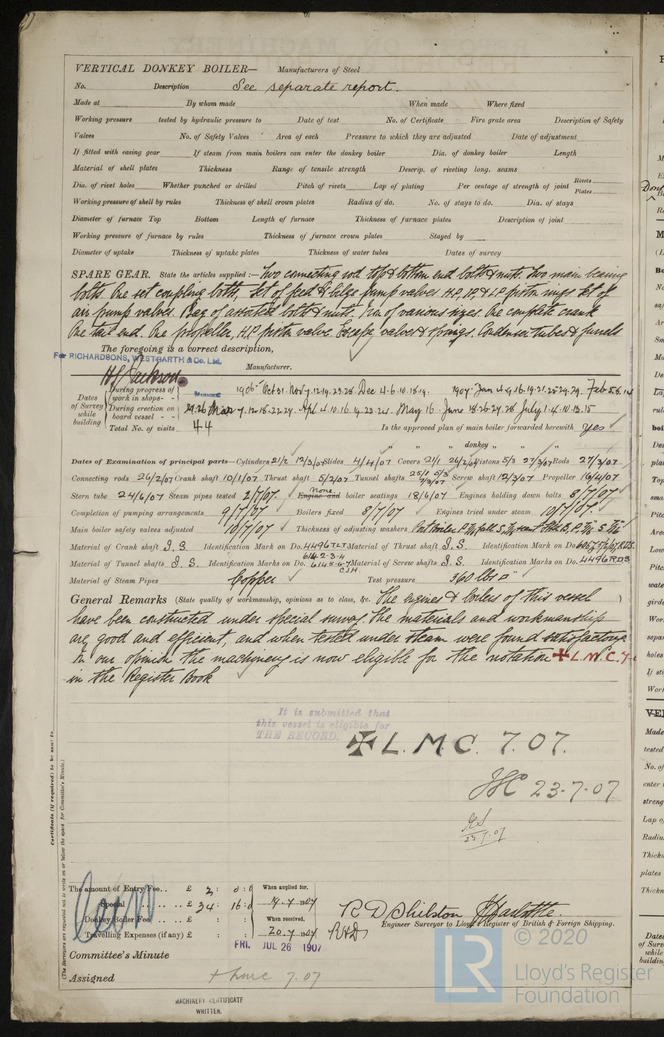 VERTICAL DONKEY BOILER— Manufacturers of Steel
No. Description See separate report.
Made at By whom made When made Where fixed
Working pressure tested by hydraulic pressure to Date of test No. of Certificate Fire grate area Description of Safety
Valves No. of Safety Valves Area of each Pressure to which they are adjusted Date of adjustment
If fitted with easing gear If steam from main boilers can enter the donkey boiler Dia. of donkey boiler Length
Material of shell plates Thickness Range of tensile strength Descrip. of riveting long. seams
Dia. of rivet holes Whether punched or drilled Pitch of rivets Lap of plating Per centage of strength of joint Rivets Plates
Working pressure of shell by rules Thickness of shell crown plates Radius of do. No. of stays to do. Dia. of stays
Diameter of furnace Top Bottom Length of furnace Thickness of furnace plates Description of joint
Working pressure of furnace by rules Thickness of furnace crown plates Stayed by
Diameter of uptake Thickness of uptake plates Thickness of water tubes Dates of survey
SPARE GEAR. State the articles supplied:— Two connecting rod top & bottom end bolts & nuts. Two main bearing
bolts. One set coupling bolts, Set of feed & bilge pump valves H.P, I.P, & L.P piston rings Set of
air pump valves. Bag of assorted bolts & nuts. Iron of various sizes. One complete crank
One tail end. One propeller, H.P. piston valve. Escape valves & springs. Condenser tubes & ferrules
The foregoing is a correct description,
For RICHARDSONS, WESTGARTH & Co. Ltd.
Manufacturer.
Dates of Survey while building
During progress of work in shops - - 1906 Oct 31. Nov 7.12.19.23.28. Dec 4.6.10.18.19. 1907 Jan 4.9.16.19.21.25.29.
During erection on board vessel - - Mar 7.12.18.22.27. Apl 4.10.16.19.23.24. May 16. June 18.26.27.28 July 1.4.10.13.15
Total No. of visits 44 Is the approved plan of main boiler forwarded herewith yes
" " " donkey " " "
Dates of Examination of principal parts—Cylinders 21/2 12/3/07 Slides 4/4/07 Covers 21/2 26/2/07 Pistons 5/3 27/3/07 Rods 27/3/07
Connecting rods 26/2/07 Crank shaft 10/1/07 Thrust shaft 5/2/07 Tunnel shafts Screw shaft 12/3/07 Propeller 16/4/07
Stern tube 24/6/07 Steam pipes tested 2/7/07. Engine and boiler seatings 18/6/07 Engines holding down bolts 8/7/07
Completion of pumping arrangements 9/7/07 Boilers fixed 8/7/07 Engines tried under steam 10/7/07
Main boiler safety valves adjusted 10/7/07 Thickness of adjusting washers
Material of Crank shaft I.S. Identification Mark on Do. 4496TLT Material of Thrust shaft I.S. Identification Mark on Do.
Material of Tunnel shafts I.S. Identification Marks on Do. Material of Screw shafts I.S. Identification Marks on Do. 4496RDS
Material of Steam Pipes Copper Test pressure 360 lbs □"
General Remarks (State quality of workmanship, opinions as to class, &c. The engines & boilers of this vessel
have been constructed under special survey. The materials and workmanship
are good and efficient, and when tested under steam were found satisfactory
In our opinion the machinery is now eligible for the notation ✠L.M.C. 7-
in the Register Book
It is submitted that
this vessel is eligible for
THE RECORD. ✠ L.M.C. 7.07.
23-7-07
Certificate (if required) to be sent to
(The Surveyors are requested not to write on or below the space for Committee's Minute.)
The amount of Entry Fee.. £ 2 : 0 : 0 When applied for,
Special £ 34 : 16 : 0 1907
Donkey Boiler Fee £ : : When received,
Travelling Expenses (if any) £ : : 20.7.1907
R D Shilston
Engineer Surveyor to Lloyd's Register of British & Foreign Shipping.
Committee's Minute FRI. JUL 26 1907
Assigned + Lmc 7.07
MACHINERY CERTIFICATE
WRITTEN.
© 2020
LR
Lloyd's Register
Foundation